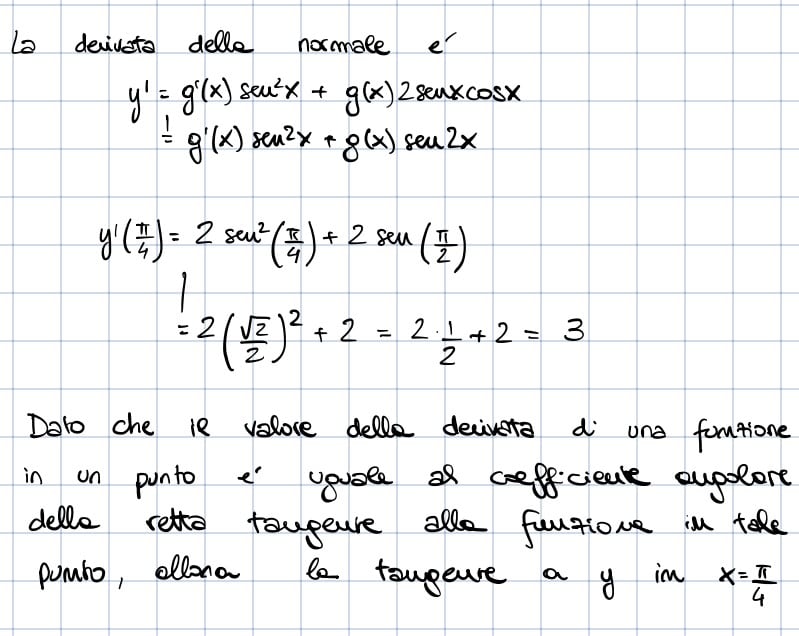 La derivata della normale e'
y' = g'(x) sen²x + g(x) 2senxcosx
= g'(x) sen²x + g(x) sen2x
y'(π/4) = 2 sen²(π/4) + 2 sen(π/2)
= 2(√2/2)² + 2 = 2·1/2 + 2 = 3
Dato che il valore della derivata di una funzione
in un punto e' uguale al coefficiente angolare
della retta tangente alla funzione in tale
punto, allora la tangente a y in x=π/4